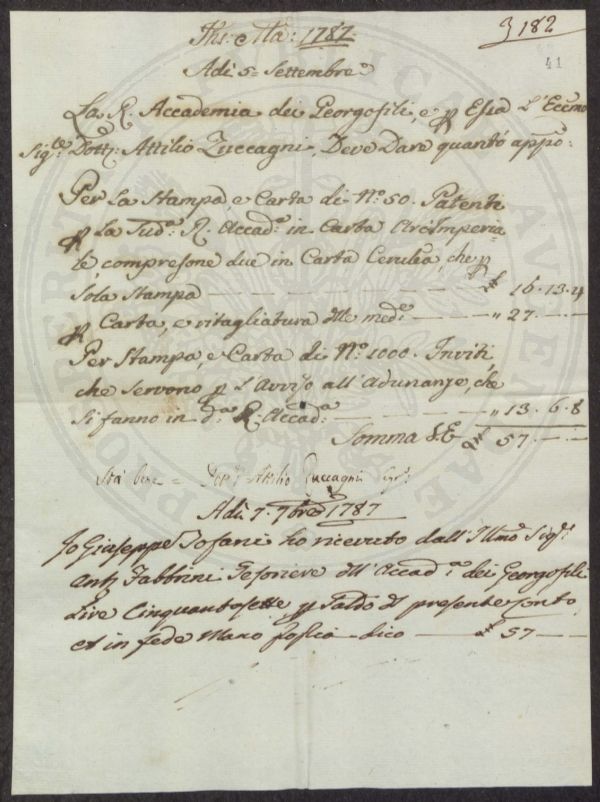 Jhs: Ma: 1787.
9 182
41
Adi 5 Settembre
La R. Accademia dei Georgofili, e p Essa L'Eccmo
Sigre Dottre Attilio Zuccagni, Deve Dare quanto appo:
Per La Stampa e Carta di No. 50. Patenti
p La Suda R. Accada in Carta Arcimperia-
le, compresone due in Carta Cerulea, che p
sola stampa — 16.13.4
p Carta, e ritagliatura dlle mede — " 27. —
Per Stampa, e Carta di No. 1000. Inviti,
che servono p l'Avviso all'Adunanze, che
si fanno in da R. Accada — " 13.6.8
Somma S.E. 57. —
Sta bene = Dotr Attilio Zuccagni Segro
Adi 7. 7bre 1787
Io Giuseppe Tofani ho ricevuto dall'Illmo Sigre
Fabbrini Tesoriere dll'Accada dei Georgofili
Lire Cinquantasette, p saldo dl presente conto
et in fede Mano Propria dico — 57 —
PROSPERITATI PUBLICAE AUGENDAE